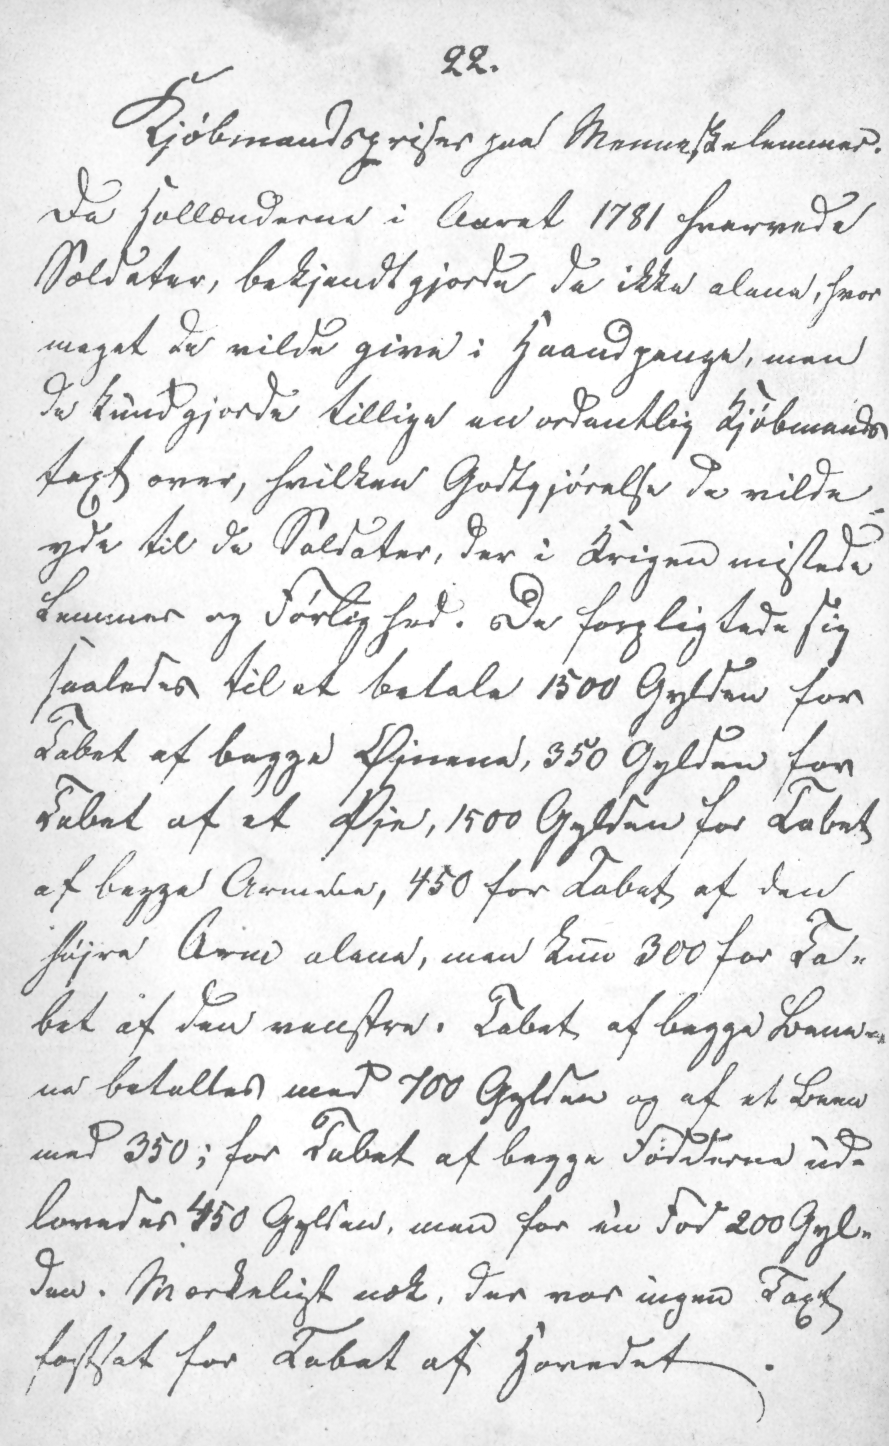 22.
Kjöbmandspriser paa Menneskelemmer.
Da Hollænderne i Aaret 1781 hvervede
Soldater, bekjendtgjorde de ikke alene, hvor
meget de vilde give i Haandpenge, men
de kundgjorde tillige en ordentlig Kjöbmands
taxt over, hvilken Godtgjörelse de vilde
yde til de Soldater, der i Krigen mistede
Lemmer og Förlighed. De forpligtede sig
saaledes til at betale 1500 Gylden for
Tabet af begge Øjnene, 350 Gylden for
Tabet af et Øje, 1500 Gylden for Tabet
af begge Armene, 450 for Tabet af den
höjre Arm alene, men kun 300 for Ta-
bet af den venstre. Tabet af begge Bene-
ne betaltes med 700 Gylden og af et Been
med 350; for Tabet af begge Födderne ud-
lovedes 450 Gylden, men for én Fod 200 Gyl-
den. Mærkeligt nok, der var ingen Taxt
fastsat for Tabet af Hovedet.